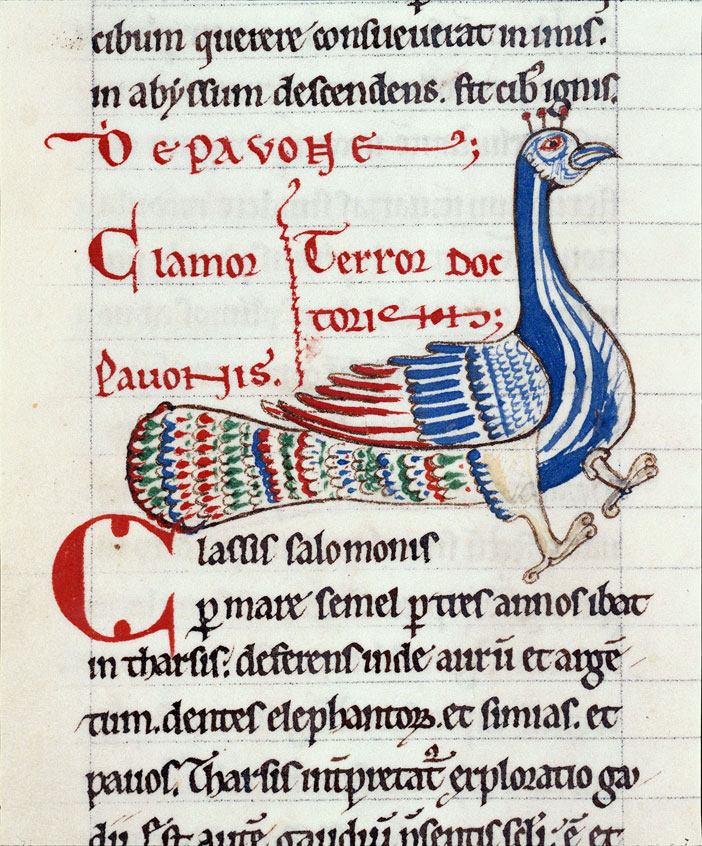 cibum querere consueuerat in imis.
in abyssum descendens. fit cib ignis.
De pavone;
Clamor Terror doc
torientis;
Pavonis.
Classis salomonis
p mare semel p tres annos ibat
in tharsis. deferens inde aurū et argē
tum. dentes elephantoꝝ. et simias. et
pavos. Tharsis intpretat exploratio gau
dii